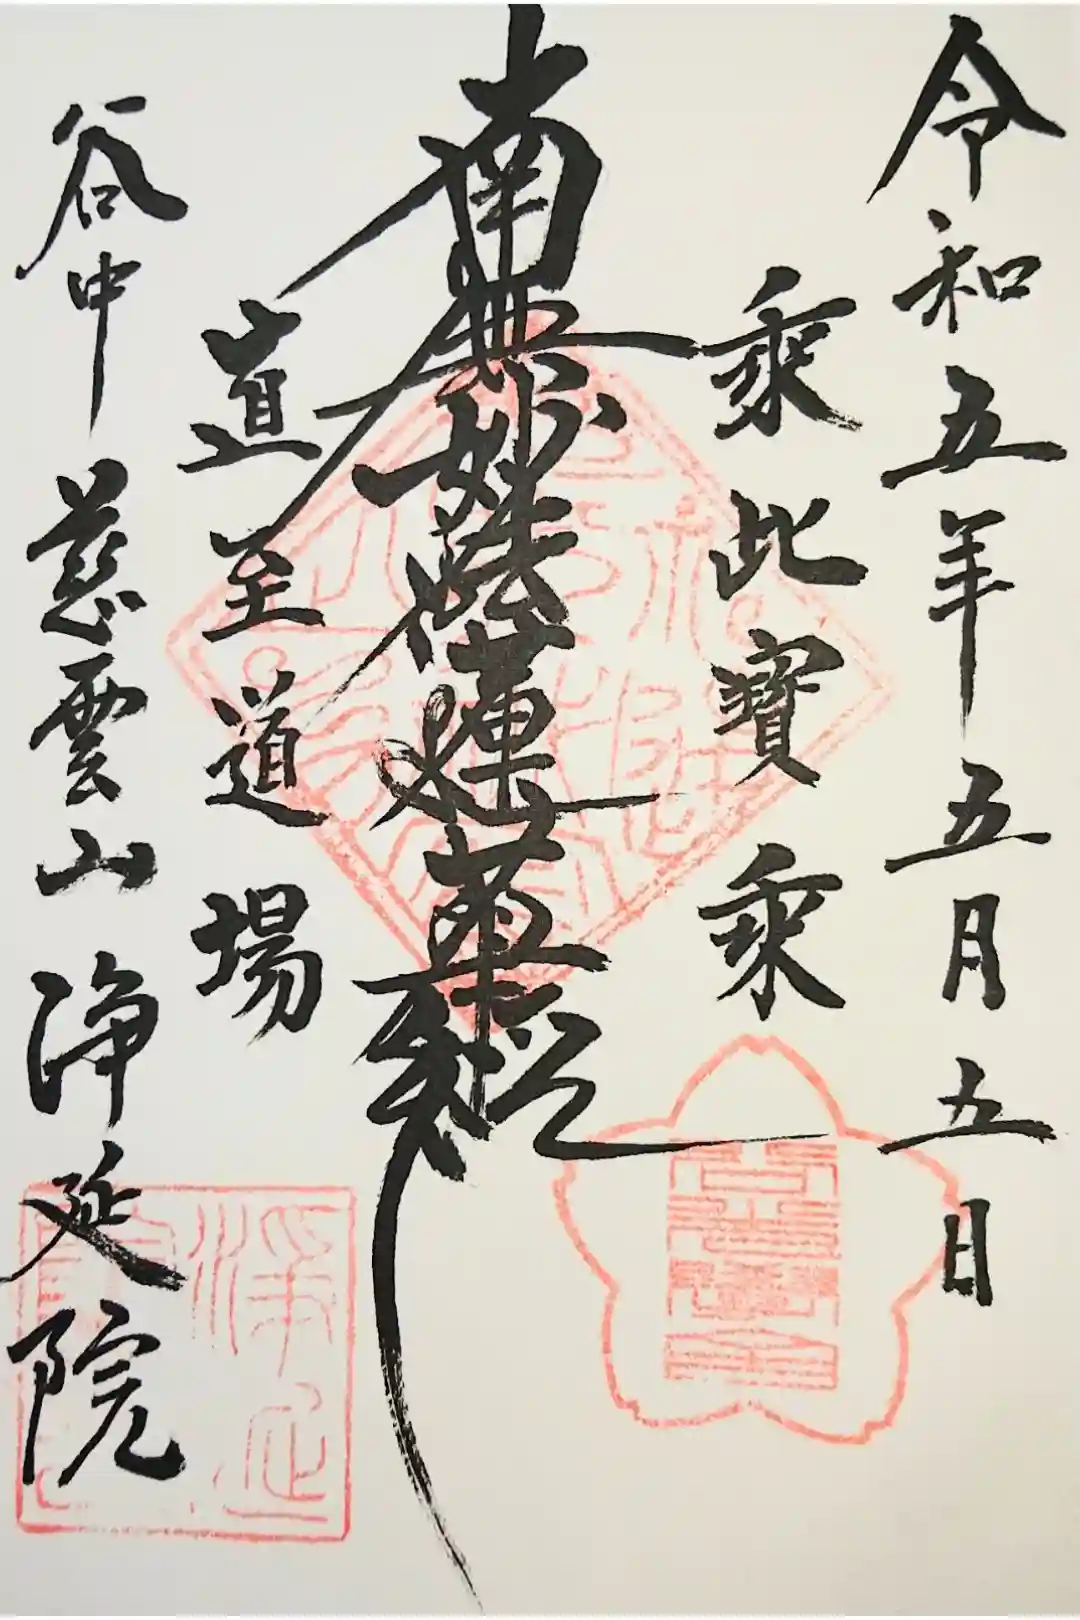 令和五年五月五日
乘此寶乘
南無妙法蓮華経
直至道場
谷中 慈雲山 浄延院
浄延